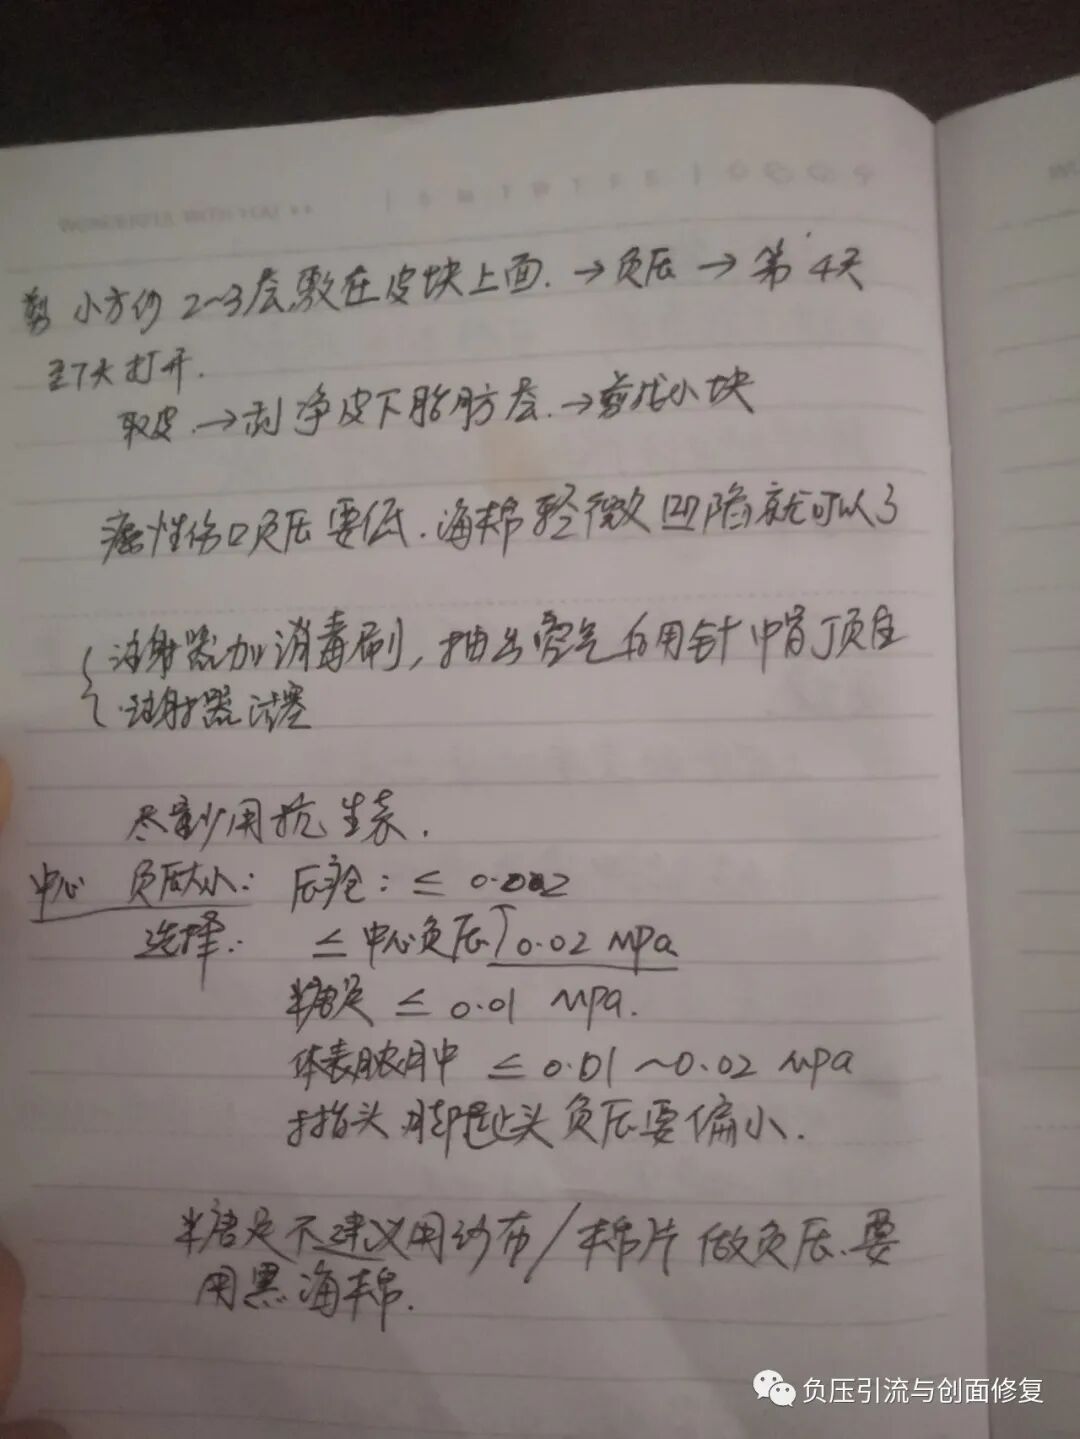 WONDERFUL WITH YOU
S M T W T F S
剪 小方纱 2~3层敷在皮块上面.→负压→第4天
至7天打开.
取皮.→刮净皮下脂肪层.→剪成小块
癌性伤口负压要低.海棉轻微凹陷就可以了
注射器加消毒刷,抽出空气 后用针帽顶住
注射器活塞
尽量少用抗生素.
中心 负压大小: 压疮:≤
选择: ≤中心负压 0.02 MPa
糖足 ≤ 0.01 MPa.
体表脓肿 ≤ 0.01~0.02 MPa
手指头 脚趾头 负压要偏小.
糖足不建议用纱布/棉片做负压.要
用黑海棉.
负压引流与创面修复